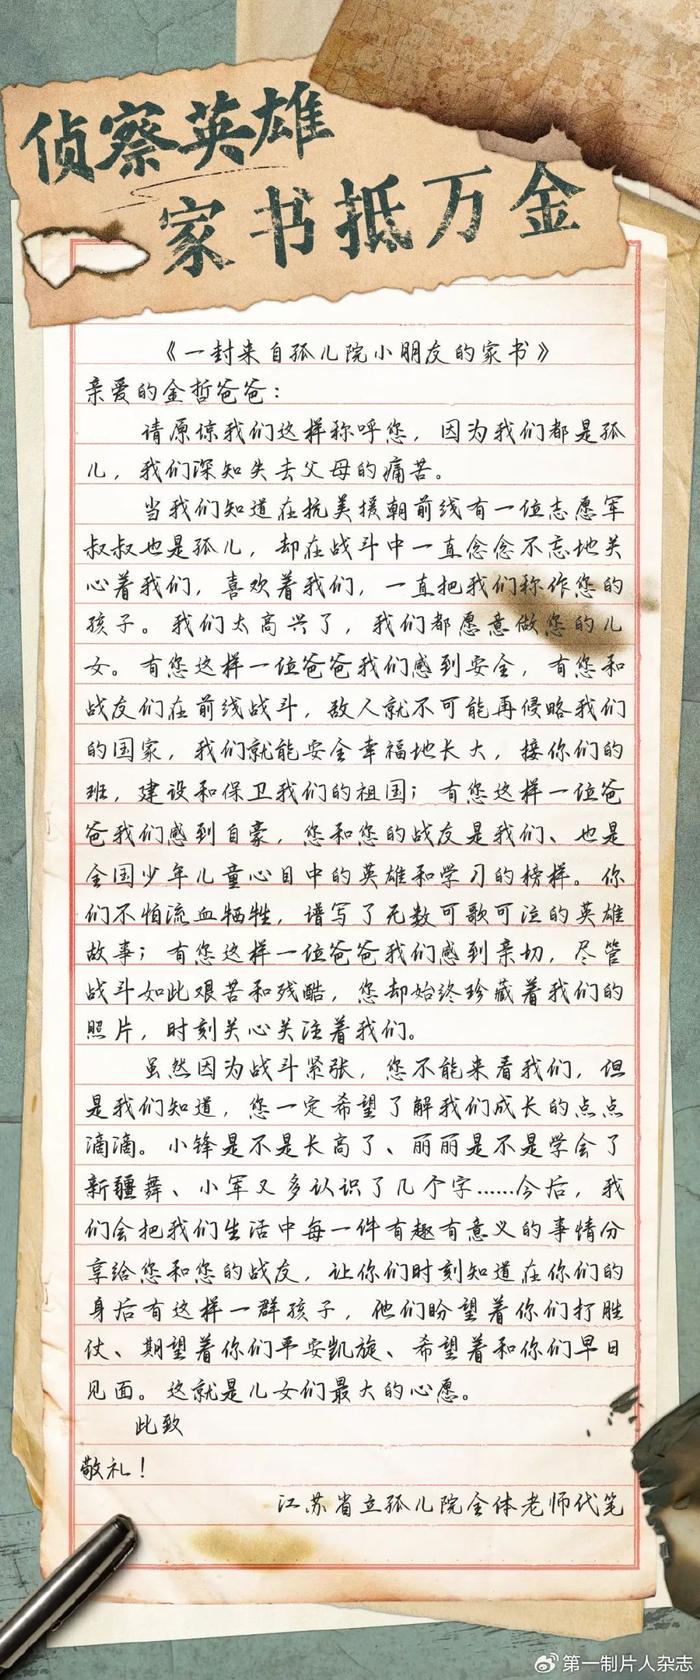 侦察英雄
家书抵万金
《一封来自孤儿院小朋友的家书》
亲爱的金哲爸爸：
请原谅我们这样称呼您，因为我们都是孤
儿，我们深知失去父母的痛苦。
当我们知道在抗美援朝前线有一位志愿军
叔叔也是孤儿，却在战斗中一直念念不忘地关
心着我们，喜欢着我们，一直把我们称作您的
孩子。我们太高兴了，我们都愿意做您的儿
女。有您这样一位爸爸我们感到安全，有您和
战友们在前线战斗，敌人就不可能再侵略我们
的国家，我们就能安全幸福地长大，接你们的
班，建设和保卫我们的祖国；有您这样一位爸
爸我们感到自豪，您和您的战友是我们、也是
全国少年儿童心目中的英雄和学习的榜样。你
们不怕流血牺牲，谱写了无数可歌可泣的英雄
故事；有您这样一位爸爸我们感到亲切，尽管
战斗如此艰苦和残酷，您却始终珍藏着我们的
照片，时刻关心关注着我们。
虽然因为战斗紧张，您不能来看我们，但
是我们知道，您一定希望了解我们成长的点点
滴滴。小锋是不是长高了、丽丽是不是学会了
新疆舞、小军又多认识了几个字……今后，我
们会把我们生活中每一件有趣有意义的事情分
享给您和您的战友，让你们时刻知道在你们的
身后有这样一群孩子，他们盼望着你们打胜
仗、期望着你们平安凯旋、希望着和你们早日
见面。这就是儿女们最大的心愿。
此致
敬礼！
江苏省立孤儿院全体老师代笔
第一制片人杂志